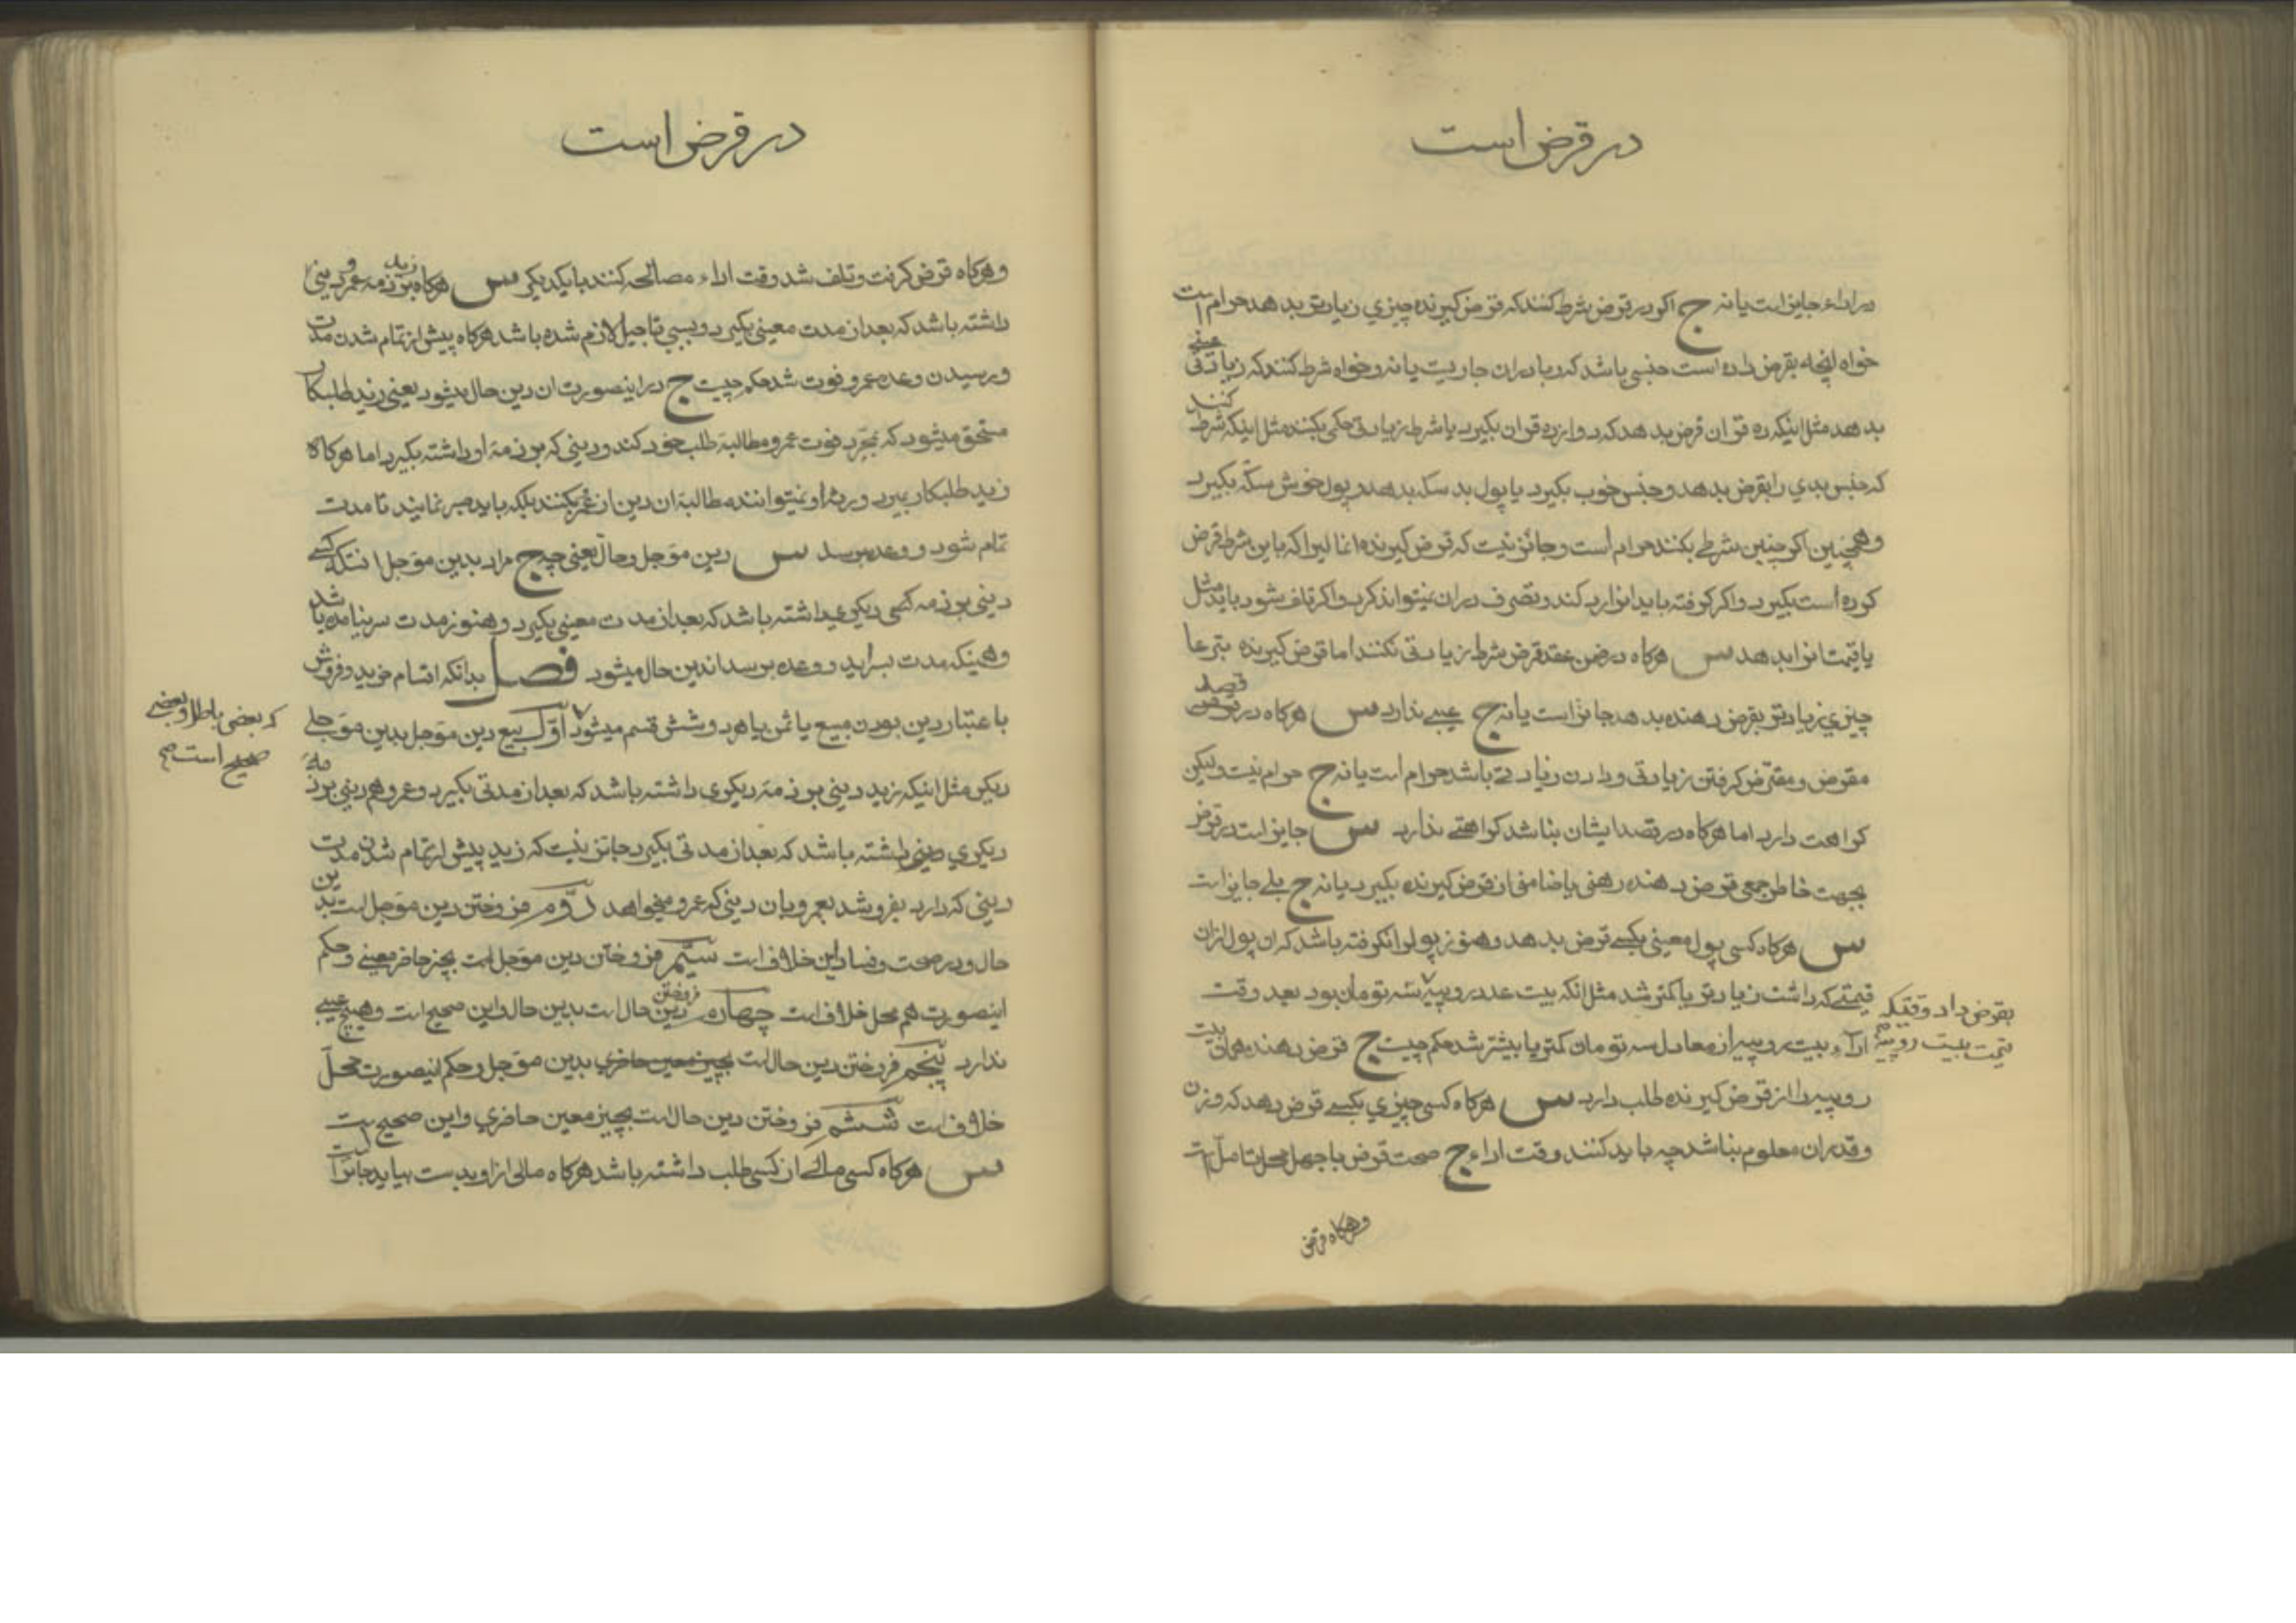 در قرض است
در اداء جایز است یا نه ج اکر در قرض شرط کنند که قرض کیرنده چیزي زیادتر بدهد حرام است
خواه انچه بقرض داده است جنسی باشد که ربا در ان جاریست یا نه و خواه شرط کنند که زیادتی عینی
بدهد مثل اینکه ده قران قرض بدهد که دوازده قران بکیرد یا شرط زیادتی حکمی بکنند مثل اینکه شرط کنند
که جنس بدي را بقرض بدهد و جنس خوب بکیرد یا پول بد سکه بدهد و پول خوش سکه بکیرد
و همچنین اکر چنین شرطی بکنند حرام است و جائز نیست که قرض کیرنده انمالیرا که باین شرط قرض
کرده است بکیرد و اکر کرفته باید انرا رد کند و تصرف در ان نمیتواند کرد و اکر تلف شود باید مثل
یا قیمت انرا بدهد س هرکاه در ضمن عقد قرض شرط زیادتی نکنند اما قرض کیرنده تبرعا
چیزي زیادتر بقرض دهنده بدهد جائز است یا نه ج عیبی ندارد س هرکاه در قرض قصد
مقرض و مقترض کرفتن زیادتی و دادن زیادتی باشد حرام است یا نه ج حرام نیست ولیکن
کراهت دارد اما هرکاه در قصد ایشان نباشد کراهتی ندارد س جایز است در قرض
بجهت خاطر جمعی قرض دهنده رهنی یا ضامنی از قرض کیرنده بکیرد یا نه ج بلی جایز است
س هرکاه کسی پول معینی بکسی قرض بدهد و هنوز پول او را نکرفته باشد که ان پول از ان
قیمتی که داشت زیادتر یا کمتر شد مثل انکه بیست عدد روپیه سه تومان بود بعد وقت
بقرض داد وقتیکه
قیمت بیست روپیه صح
اداء بیست روپیه از معادل سه تومان کمتر یا بیشتر شد حکم چیست ج قرض دهنده همان بیست
روپیه را از قرض کیرنده طلب دارد س هرکاه کسی چیزي بکسی قرض دهد که وزن
و قدر ان معلوم نباشد چه باید کنند وقت اداء ج صحت قرض با جهل محل تامل است
و هرکاه قرض
در قرض است
و هرکاه قرض کرفت و تلف شد وقت اداء مصالحه کنند با یکدیکر س هرکاه زید بر ذمه عمرو دینی
داشته باشد که بعد از مدت معینی بکیرد و بسببي تاجیل لازم شده باشد هرکاه پیش از تمام شدن مدت
و رسیدن وعده عمرو فوت شد حکم چیست ج در اینصورت ان دین حال میشود یعنی زید طلبکار
مستحق میشود که بمجرد فوت عمرو مطالبۀ طلب خود کند و دینی که بر ذمۀ او داشته بکیرد اما هرکاه
زید طلبکار بمیرد ورثۀ او نمیتوانند مطالبۀ ان دین از عمرو بکنند بلکه باید صبر نمایند تا مدت
تمام شود و وعده برسد س دین مؤجل و حال یعنی چه ج مراد بدین مؤجل انستکه کسی
دینی بر ذمه کسی دیکري داشته باشد که بعد از مدت معینی بکیرد و هنوز مدت سر نیامده باشد
و همینکه مدت بسر اید و وعده برسد اندین حال میشود فصل بدانکه اقسام خرید و فروش
باعتبار دین بودن مبیع یا ثمن یا هر دو شش قسم میشود اوّل بیع دین مؤجل بدین مؤجلی
که بعضی باطل و بعضی
صحیح است صح
دیکر مثل اینکه زید دینی بر ذمۀ دیکري داشته باشد که بعد از مدتی بکیرد و عمرو هم دینی بر ذمۀ
دیکري داشته باشد که بعد از مدتی بکیرد جائز نیست که زید پیش از تمام شدن مدت
دینی که دارد بفروشد بعمرو بان دینی که عمرو میخواهد دوّم فروختن دین مؤجل است بدین
حال و در صحت و فساد این خلاف است سیّم فروختن دین مؤجل است بچیز حاضر معینی و حکم
اینصورت هم محل خلاف است چهارم فروختن دین حال است بدین حال و این صحیح است و هیچ عیبی
ندارد پنجم فروختن دین حال است بچیز معین حاضري بدین مؤجل و حکم اینصورت محل
خلاف است ششم فروختن دین حال است بچیز معین حاضري و این صحیح است
س هرکاه کسی مالی از کسی طلب داشته باشد هرکاه مالی از او بدست بیاید جائز است